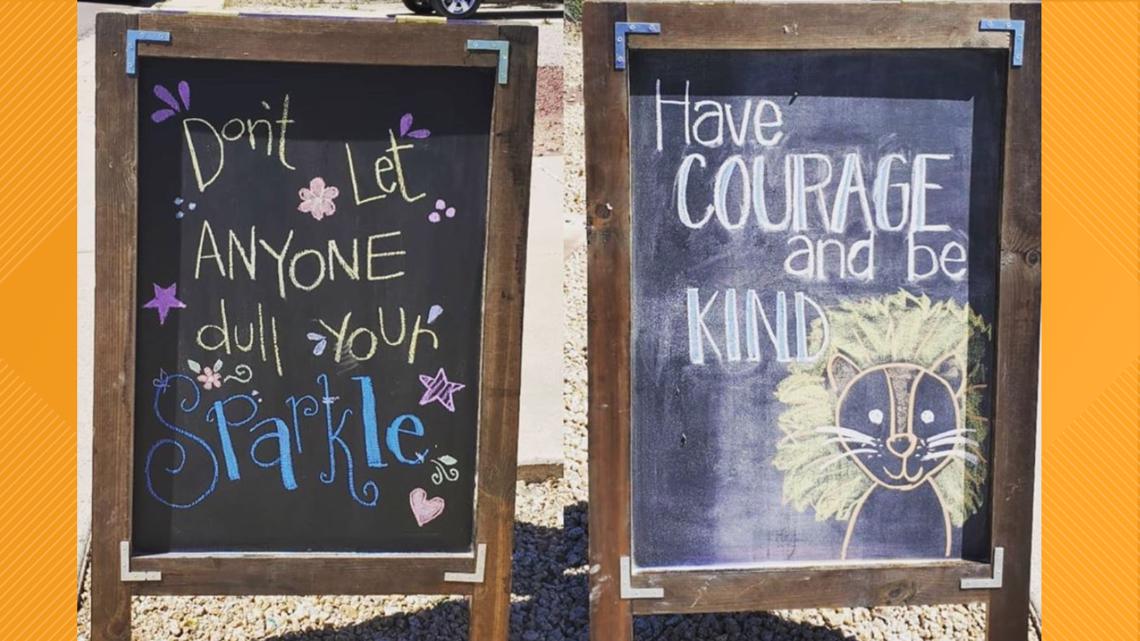 Don't Let
ANYONE
dull your
Sparkle
Have
COURAGE
and be
KIND